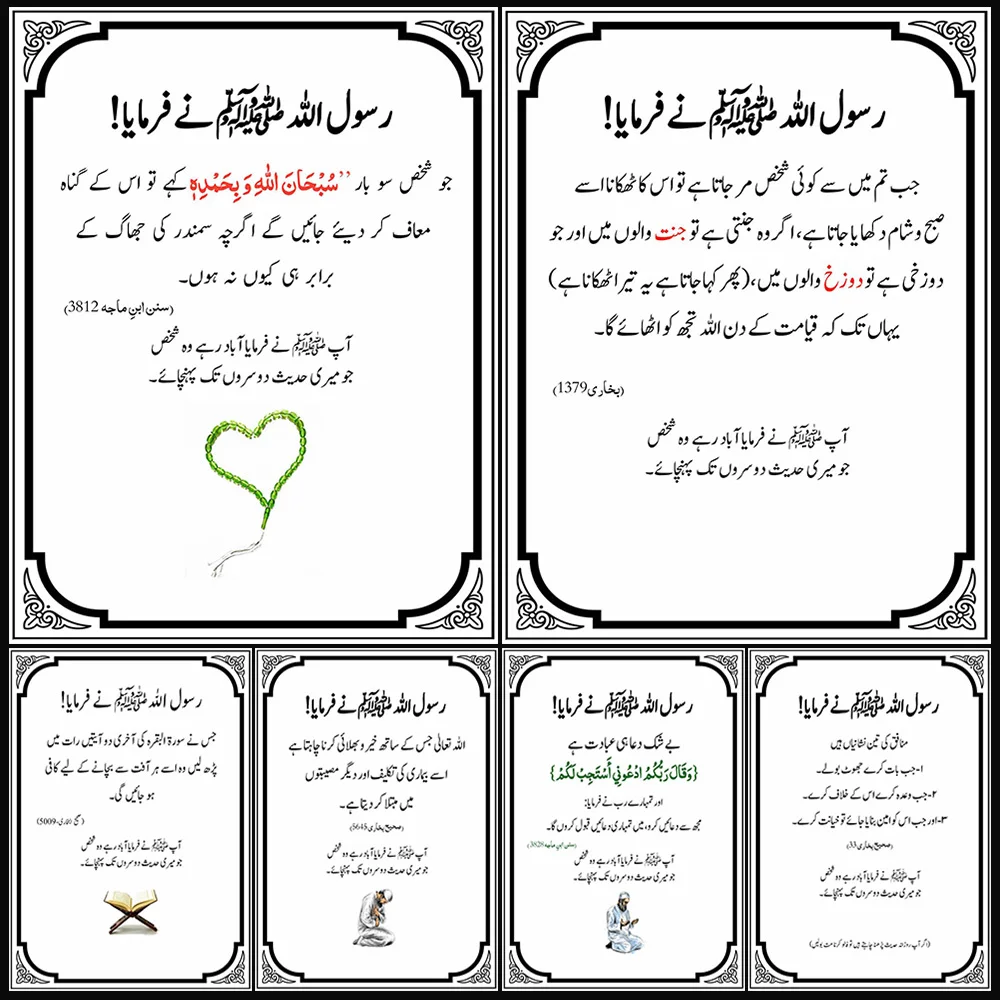 رسول اللہ ﷺ نے فرمایا!
جب تم میں سے کوئی شخص مر جاتا ہے تو اس کا ٹھکانا اسے
صبح و شام دکھایا جاتا ہے، اگر وہ جنتی ہے تو جنت والوں میں اور جو
دوزخی ہے تو دوزخ والوں میں، (پھر کہا جاتا ہے یہ تیرا ٹھکانا ہے)
یہاں تک کہ قیامت کے دن اللہ تجھ کو اٹھائے گا۔
(بخاری 1379)
آپ ﷺ نے فرمایا آباد رہے وہ شخص
جو میری حدیث دوسروں تک پہنچائے۔
رسول اللہ ﷺ نے فرمایا!
جو شخص سو بار ”سُبْحَانَ اللهِ وَ بِحَمْدِهٖ کہے تو اس کے گناہ
معاف کر دیئے جائیں گے اگرچہ سمندر کی جھاگ کے
برابر ہی کیوں نہ ہوں۔
(سنن ابنِ ماجه 3812)
آپ ﷺ نے فرمایا آباد رہے وہ شخص
جو میری حدیث دوسروں تک پہنچائے۔
رسول اللہ ﷺ نے فرمایا!
منافق کی تین نشانیاں ہیں
۱- جب بات کرے جھوٹ بولے۔
۲- جب وعدہ کرے اس کے خلاف کرے۔
۳- اور جب اس کو امین بنایا جائے تو خیانت کرے۔
(صحیح بخاری 33)
آپ ﷺ نے فرمایا آباد رہے وہ شخص
جو میری حدیث دوسروں تک پہنچائے۔
(اگر آپ روزانہ حدیث پڑھنا چاہتے ہیں تو فالو کرنا مت بولیں)
رسول اللہ ﷺ نے فرمایا!
بے شک دعا ہی عبادت ہے
{وَقَالَ رَبُّكُمُ ادْعُونِي أَسْتَجِبْ لَكُمْ}
اور تمہارے رب نے فرمایا:
مجھ سے دعائیں کرو، میں تمہاری دعائیں قبول کروں گا۔
(سنن ابنِ ماجه 3828)
آپ ﷺ نے فرمایا آباد رہے وہ شخص
جو میری حدیث دوسروں تک پہنچائے۔
رسول اللہ ﷺ نے فرمایا!
اللہ تعالی جس کے ساتھ خیر و بھلائی کرنا چاہتا ہے
اسے بیماری کی تکلیف اور دیگر مصیبتوں
میں مبتلا کر دیتا ہے۔
(صحیح بخاری 5645)
آپ ﷺ نے فرمایا آباد رہے وہ شخص
جو میری حدیث دوسروں تک پہنچائے۔
رسول اللہ ﷺ نے فرمایا!
جس نے سورۃ البقرہ کی آخری دو آیتیں رات میں
پڑھ لیں وہ اسے ہر آفت سے بچانے کے لیے کافی
ہو جائیں گی۔
(صحیح بخاری-5009)
آپ ﷺ نے فرمایا آباد رہے وہ شخص
جو میری حدیث دوسروں تک پہنچائے۔